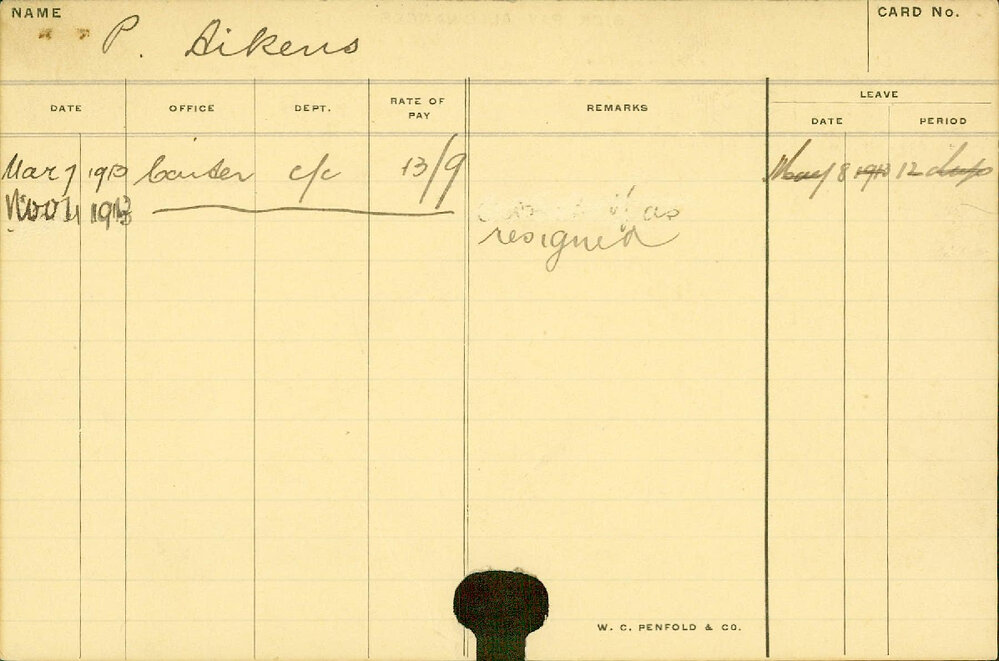 NAME
P. Aikens
CARD No.
DATE OFFICE DEPT. RATE OF PAY REMARKS LEAVE
DATE PERIOD
Mar 7 1913 Carter c/c 13/9 8 1913 12 days
Nov 1913
as
resigned
W. C. PENFOLD & CO.